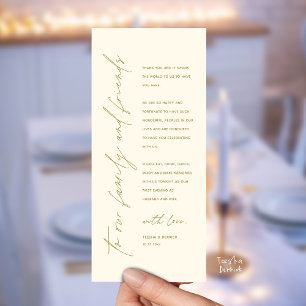 to our family, and friends
THANK YOU AND IT MEANS
THE WORLD TO US TO HAVE
YOU HERE
WE ARE SO HAPPY AND
FORTUNATE TO HAVE SUCH
WONDERFUL PEOPLES IN OUR
LIVES AND ARE HONOURED
TO HAVE YOU CELEBRATING
WITH US.
PLEASE EAT, DRINK, DANCE,
ENJOY AND MAKE MEMORIES
WITH US TONIGHT AS OUR
FIRST EVENING AS
HUSBAND AND WIFE.
with love,